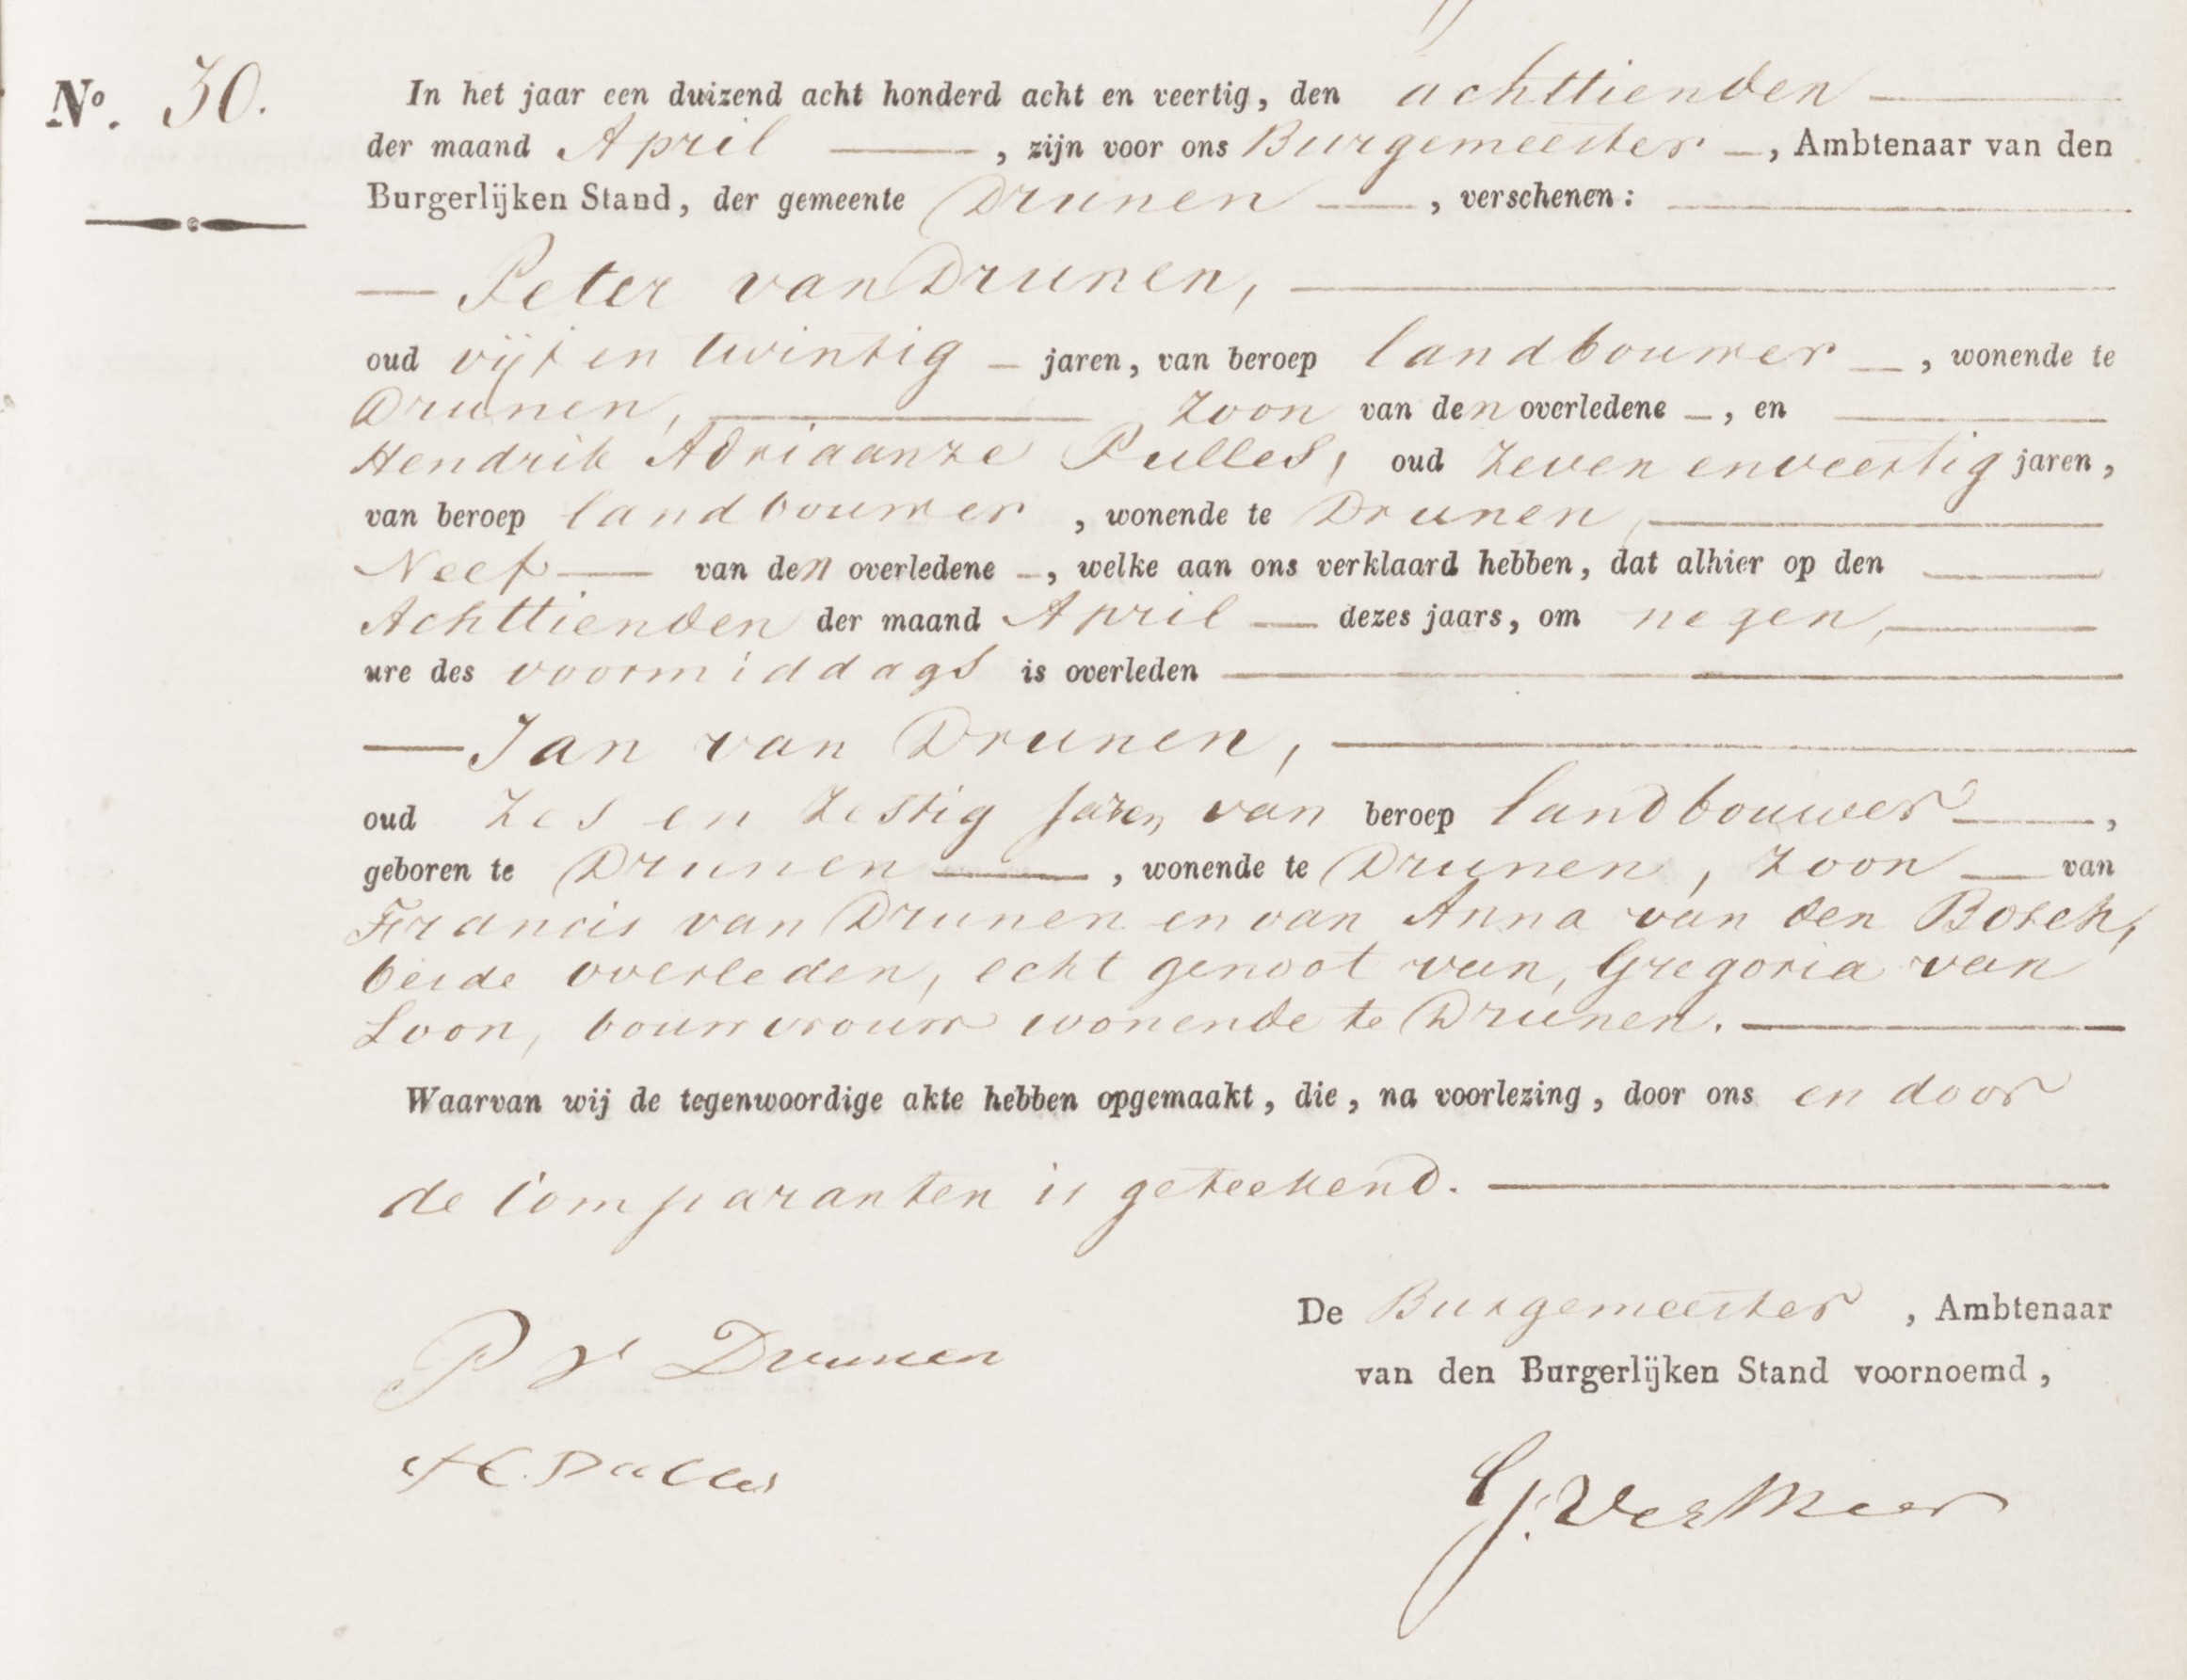 No. 30.
In het jaar een duizend acht honderd acht en veertig, den achttienden
der maand April, zijn voor ons Burgemeester, Ambtenaar van den
Burgerlijken Stand, der gemeente Drunen, verschenen:
Peter van Drunen,
oud vijf en twintig jaren, van beroep landbouwer, wonende te
Drunen, Zoon van den overledene, en
Hendrik Adriaanze Pulles, oud Zeven en veertig jaren,
van beroep landbouwer, wonende te Drunen,
Neef van den overledene, welke aan ons verklaard hebben, dat alhier op den
Achttienden der maand April dezes jaars, om negen,
ure des voormiddags is overleden
Jan van Drunen,
oud Zes en Zestig jaren van beroep landbouwer,
geboren te Drunen, wonende te Drunen, Zoon van
Francis van Drunen en van Anna van den Bosch,
beide overleden, echt genoot van, Gregoria van
Loon, bouwvrouw wonende te Drunen.
Waarvan wij de tegenwoordige akte hebben opgemaakt, die, na voorlezing, door ons en door
de Comparanten is geteekend.
De Burgemeester, Ambtenaar
van den Burgerlijken Stand voornoemd,
P v Drunen
Pulles
VerMeer